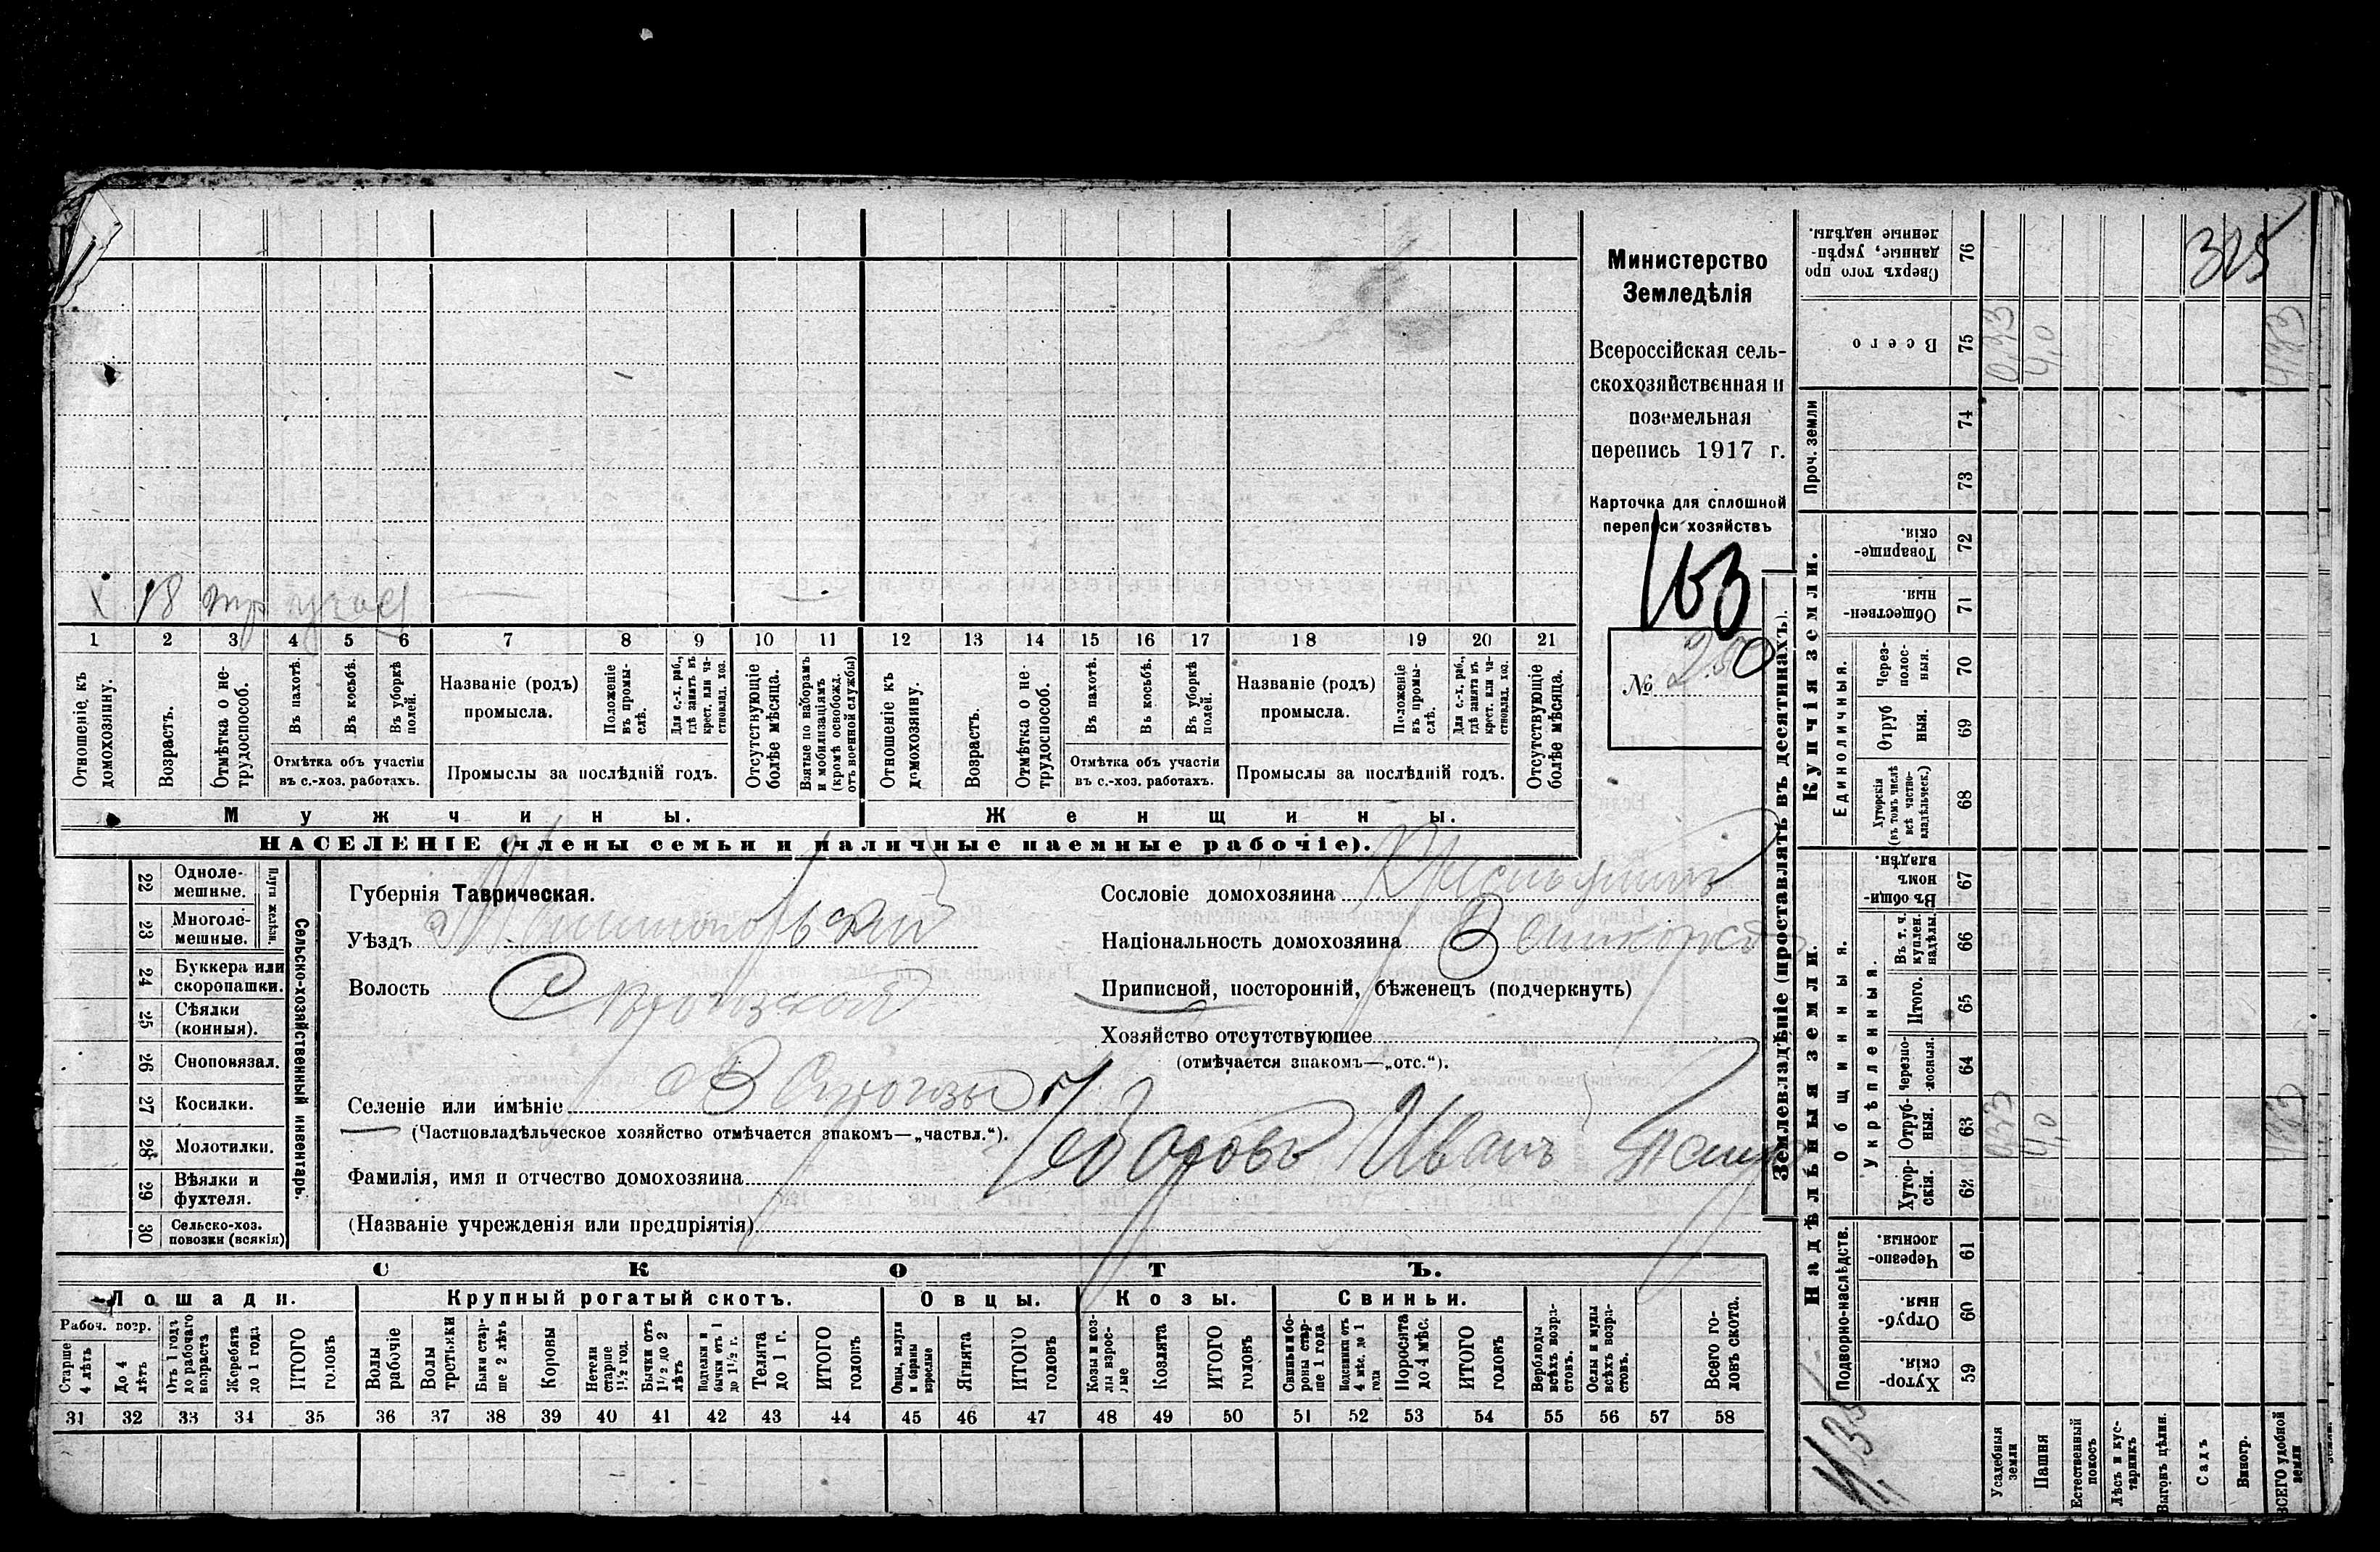 325
Министерство
Земледѣлія
Всероссійская сель-
скохозяйственная и
поземельная
перепись 1917 г.
Карточка для сплошной
переписи хозяйствъ
163
№ 250
18
1 2 3 4 5 6 7 8 9 10 11 12 13 14 15 16 17 18 19 20 21
Отношеніе къ домохозяину.
Возрастъ.
Отмѣтка о не-трудоспособ.
Въ пахотѣ.
Въ косьбѣ.
Въ уборкѣ полей.
Названіе (родъ) промысла.
Положеніе въ промы-слѣ.
Для с.-х. раб., гдѣ занятъ въ крест. или ча-стновлад. хоз.
Отсутствующіе болѣе мѣсяца.
Взятые по наборамъ и мобилизаціямъ (кромѣ освобожд. отъ военной службы)
Отношеніе къ домохозяину.
Возрастъ.
Отмѣтка о не-трудоспособ.
Въ пахотѣ.
Въ косьбѣ.
Въ уборкѣ полей.
Названіе (родъ) промысла.
Положеніе въ промы-слѣ.
Для с.-х. раб., гдѣ занята въ крест. или ча-стновлад. хоз.
Отсутствующіе болѣе мѣсяца.
Отмѣтка объ участіи въ с.-хоз. работахъ.
Промыслы за послѣдній годъ.
Отмѣтка объ участіи въ с.-хоз. работахъ.
Промыслы за послѣдній годъ.
Мужчины.
Женщины.
НАСЕЛЕНІЕ (члены семьи и наличные наемные рабочіе).
22 Одноле-мешные.
23 Многоле-мешные.
Плуги желѣзн.
24 Буккера или скоропашки.
25 Сѣялки (конныя).
26 Сноповязал.
27 Косилки.
28 Молотилки.
29 Вѣялки и фухтеля.
30 Сельско-хоз. повозки (всякія)
Сельско-хозяйственный инвентарь.
Губернія Таврическая.
Уѣздъ
Волость
Селеніе или имѣніе
(Частновладѣльческое хозяйство отмѣчается знакомъ—„частвл.“).
Фамилія, имя и отчество домохозяина Иванъ
(Названіе учрежденія или предпріятія)
Сословіе домохозяина
Національность домохозяина
Приписной, посторонній, бѣженецъ (подчеркнуть)
Хозяйство отсутствующее
(отмѣчается знакомъ—„отс.“).
СКОТЪ.
Лошади.
Крупный рогатый скотъ.
Овцы.
Козы.
Свиньи.
Рабоч. возр.
Старше 4 лѣтъ
До 4 лѣтъ
Отъ 1 года до рабочаго возраста
Жеребята до 1 года
ИТОГО головъ
Волы рабочіе
Волы третьяки
Быки стар-ше 2 лѣтъ
Коровы
Нетели старше 1½ год.
Бычки отъ 1½ до 2 лѣтъ
Подтелки и бычки отъ 1 до 1½ г.
Телята до 1 г.
ИТОГО головъ
Овцы, валухи и бараны взрослые
Ягнята
ИТОГО головъ
Козы и коз-лы взрос-лые
Козлята
ИТОГО головъ
Свиньи и бо-ровы стар-ше 1 года
Подсвинки отъ 4 мѣс. до 1 года
Поросята до 4 мѣс.
ИТОГО головъ
Верблюды всѣхъ возра-стовъ.
Ослы и мулы всѣхъ возра-стовъ.
Всего го-ловъ скота.
31 32 33 34 35 36 37 38 39 40 41 42 43 44 45 46 47 48 49 50 51 52 53 54 55 56 57 58
Землевладѣніе (проставлять въ десятинахъ).
Надѣльныя земли.
Купчія земли.
Проч. земли
Подворно-наслѣдств.
Общинныя.
Укрѣпленныя.
Единоличныя.
Сверхъ того про данные, укрѣп-ленные надѣлы. 76
Всего 75
74
73
Товарище-скія 72
Обществен-ныя. 71
Через-полос-ныя. 70
Отруб ныя. 69
Хуторскія (въ томъ числѣ всѣ частно-владѣльческ.) 68
Въ общин-номъ владѣн. 67
Въ т. ч. куплен. надѣлы. 66
Итого. 65
Черезпо-лосныя. 64
Отруб-ныя. 63
Хутор-скія. 62
Черезпо-лосныя. 61
Отруб-ныя. 60
Хутор-скія. 59
Усадебныя земли
Пашня
Естественный покосъ
Лѣсъ и кус-тарникъ
Выгонъ цѣлин.
Садъ
Виногр.
ВСЕГО удобной земли
0,33
4,0
0,33
4,0